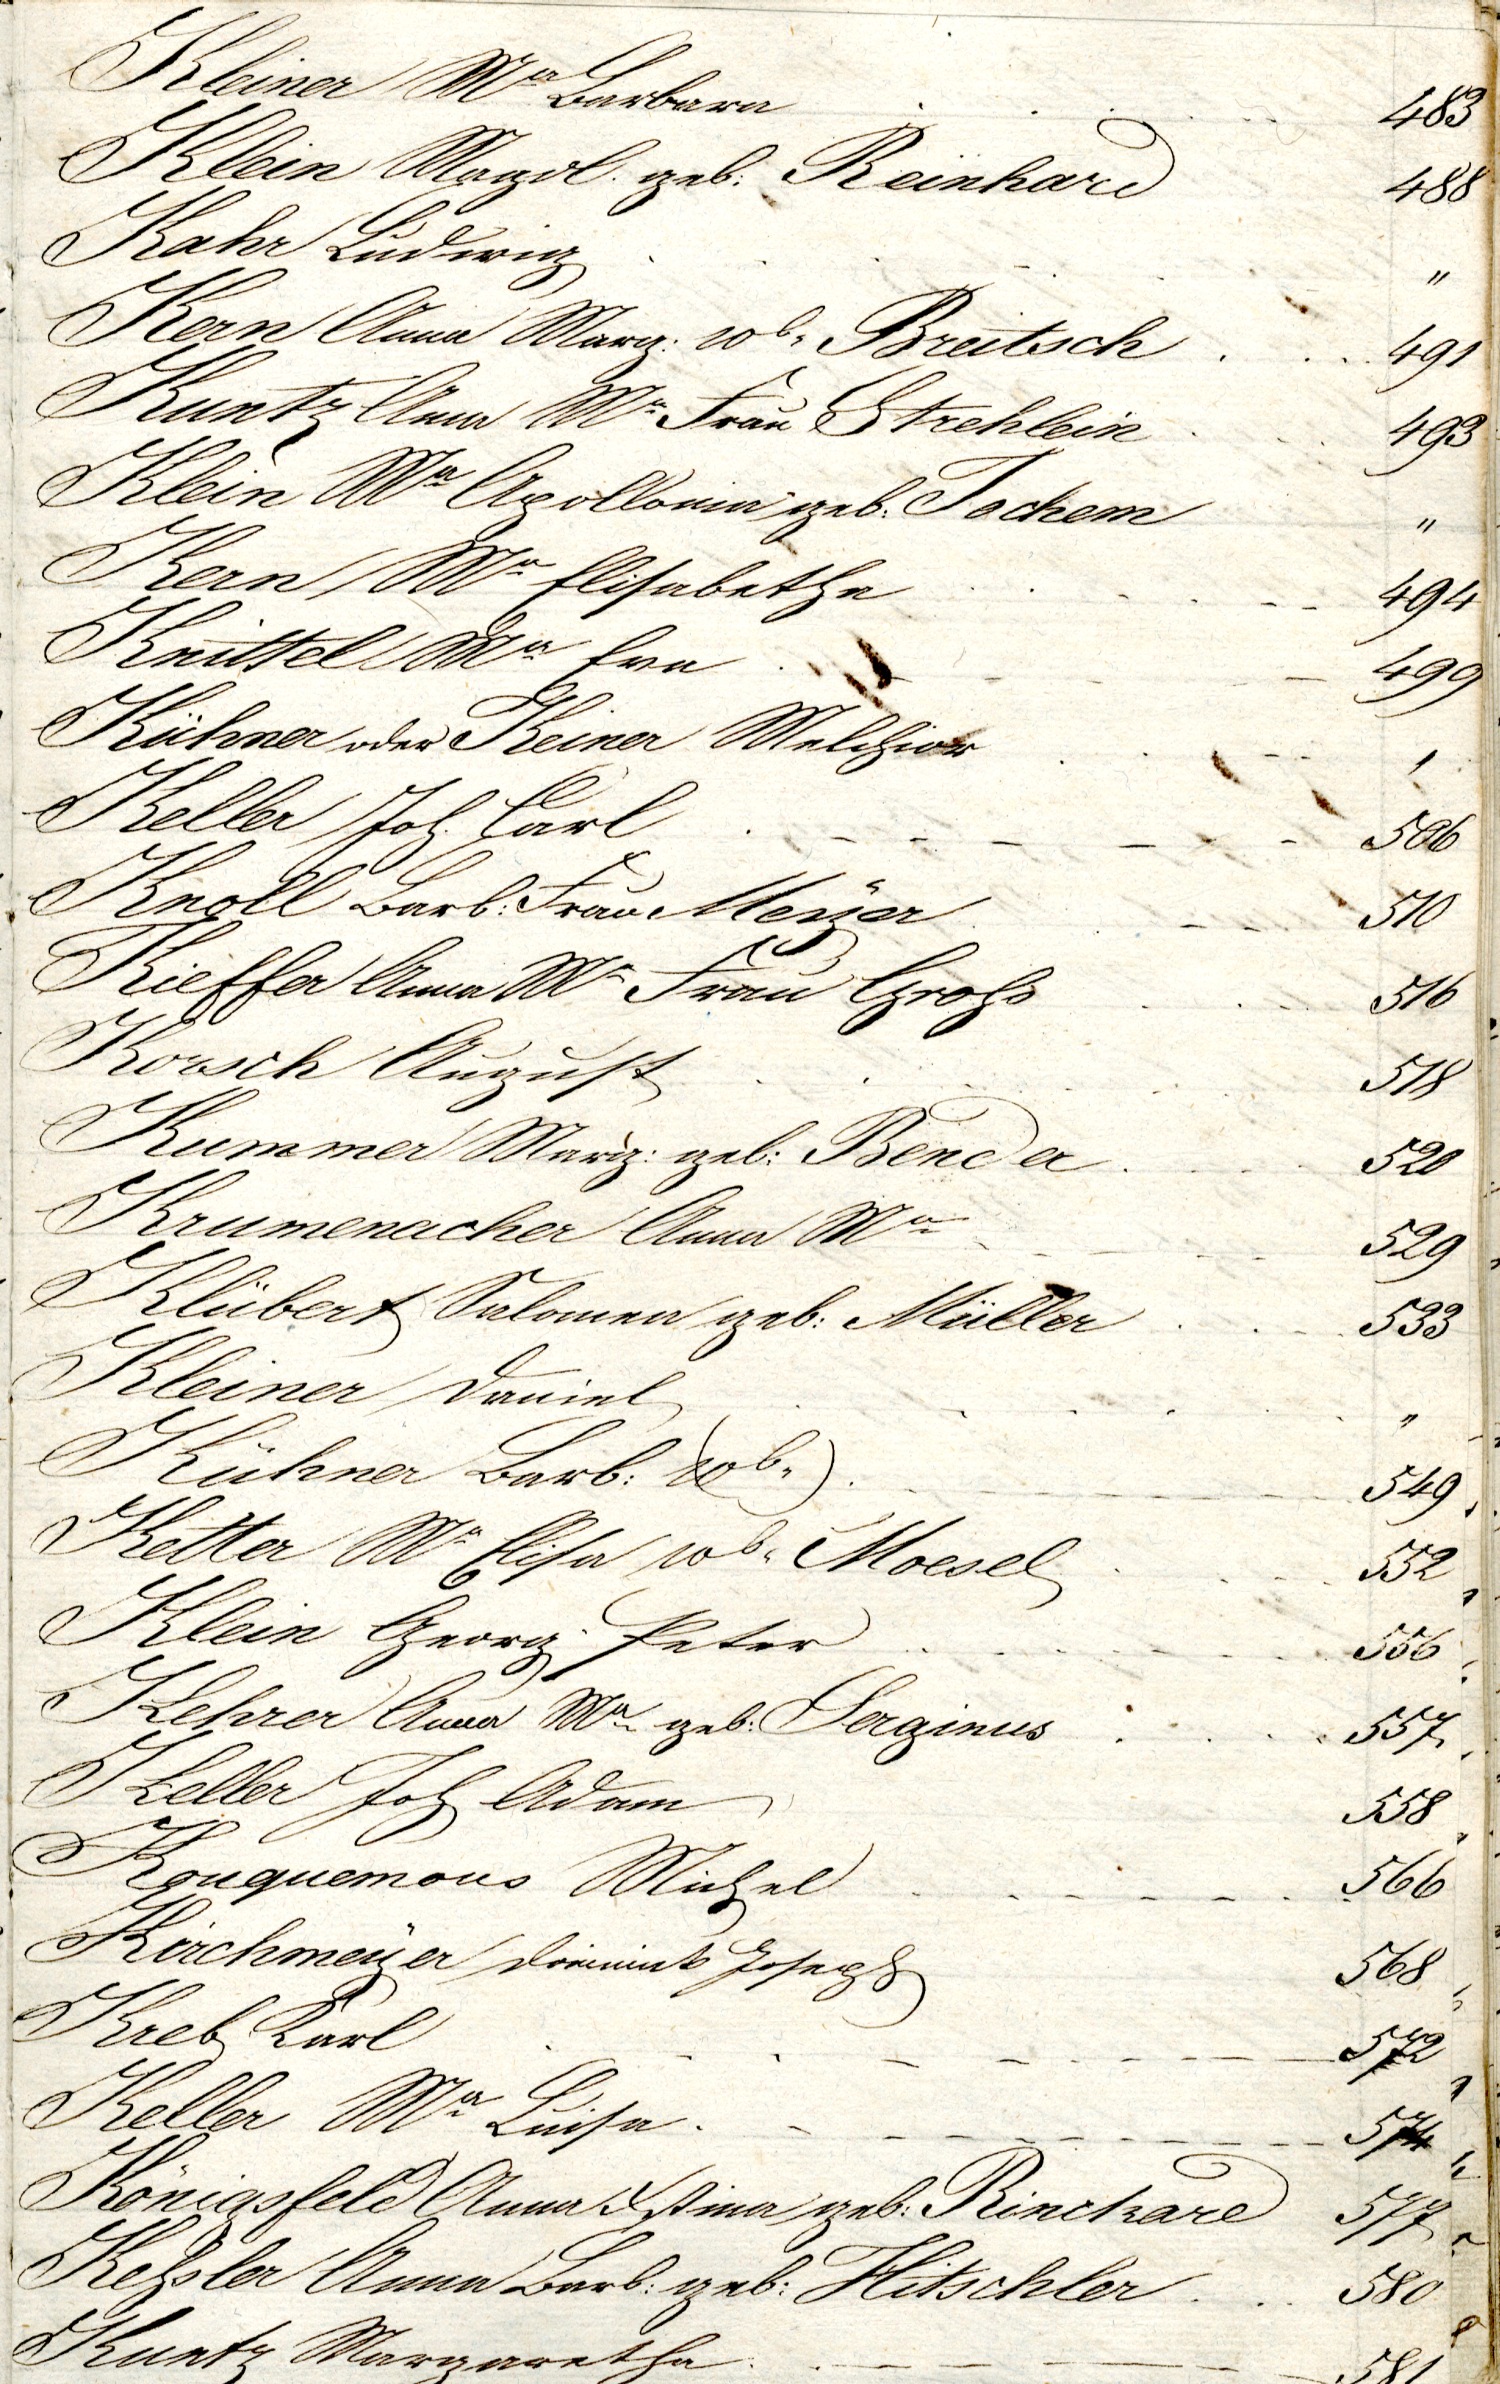 Kleiner Ma Barbara 483
Klein Magdl. geb: Reinhard 488
Kahr Ludwig "
Kern Anna Marg: wb. Breitsch 491
Kuntz Anna Ma Frau Strehlein 493
Klein Ma Apollonia geb. Jochem "
Kern Ma Elisabetha 494
Knittel Ma Eva 499
Kühner oder Keiner Melchior "
Keller Joh. Carl 506
Knoll Barb: Frau Meÿer 510
Kieffer Anna Ma Frau Groß 516
Korsch August 518
Kummer Marg: geb: Bender 520
Krumenacher Anna Ma 529
Klübert Salomea geb: Müller 533
Kleiner Daniel "
Kühner Barb: (wb.) 549
Ketter Ma Elisa wb. Moesel 552
Klein Georg Peter 556
Kehrer Anna Ma geb: Serginus 557
Keller Joh Adam 558
Kouquemous Michel 566
Kirchmeÿer Dominik Joseph 568
Kreb Karl 572
Keller Ma Luisa 574
Königsfeld Anna geb: Rinckard 577
Keßler Anna Barb: geb: Hitschler 580
Kuntz Margaretha 581